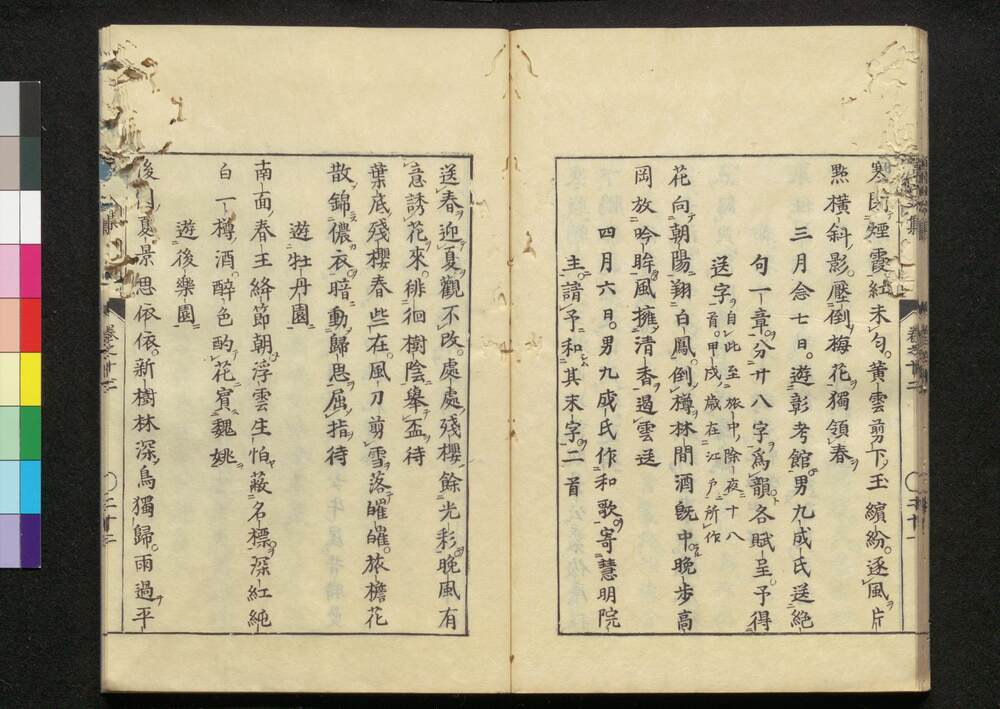 寒日煙霞紅未匀。黃雲剪下玉繽紛。逐風片
㸃橫斜影。壓倒梅花獨領春。
三月念七日。遊彰考館。男九成氏送絶
句一章。分廿八字爲韻。各賦呈。予得
送字。自此至旅中除夜十八
首。甲戌歳在江戸所作
花向朝陽翔白鳳。倒樽林間酒既中。晩步高
岡放吟眸。風擁清香遏雲送
四月六日。男九成氏作和歌。寄慧明院
主。請予和其末字。二首
送春迎夏觀不改。處處殘櫻餘光彩。晩風有
意誘花來。徘徊樹陰擧盃待
葉底殘櫻春些在。風刀剪雪落皠皠。旅檐花
散錦儂衣。暗動歸思屈指待
遊牡丹園
南面春王絳節朝。浮雲生怕蔽名標。深紅純
白一樽酒。醉色酌花賓魏姚
遊後樂園
後園夏景思依依。新樹林深鳥獨歸。雨過平